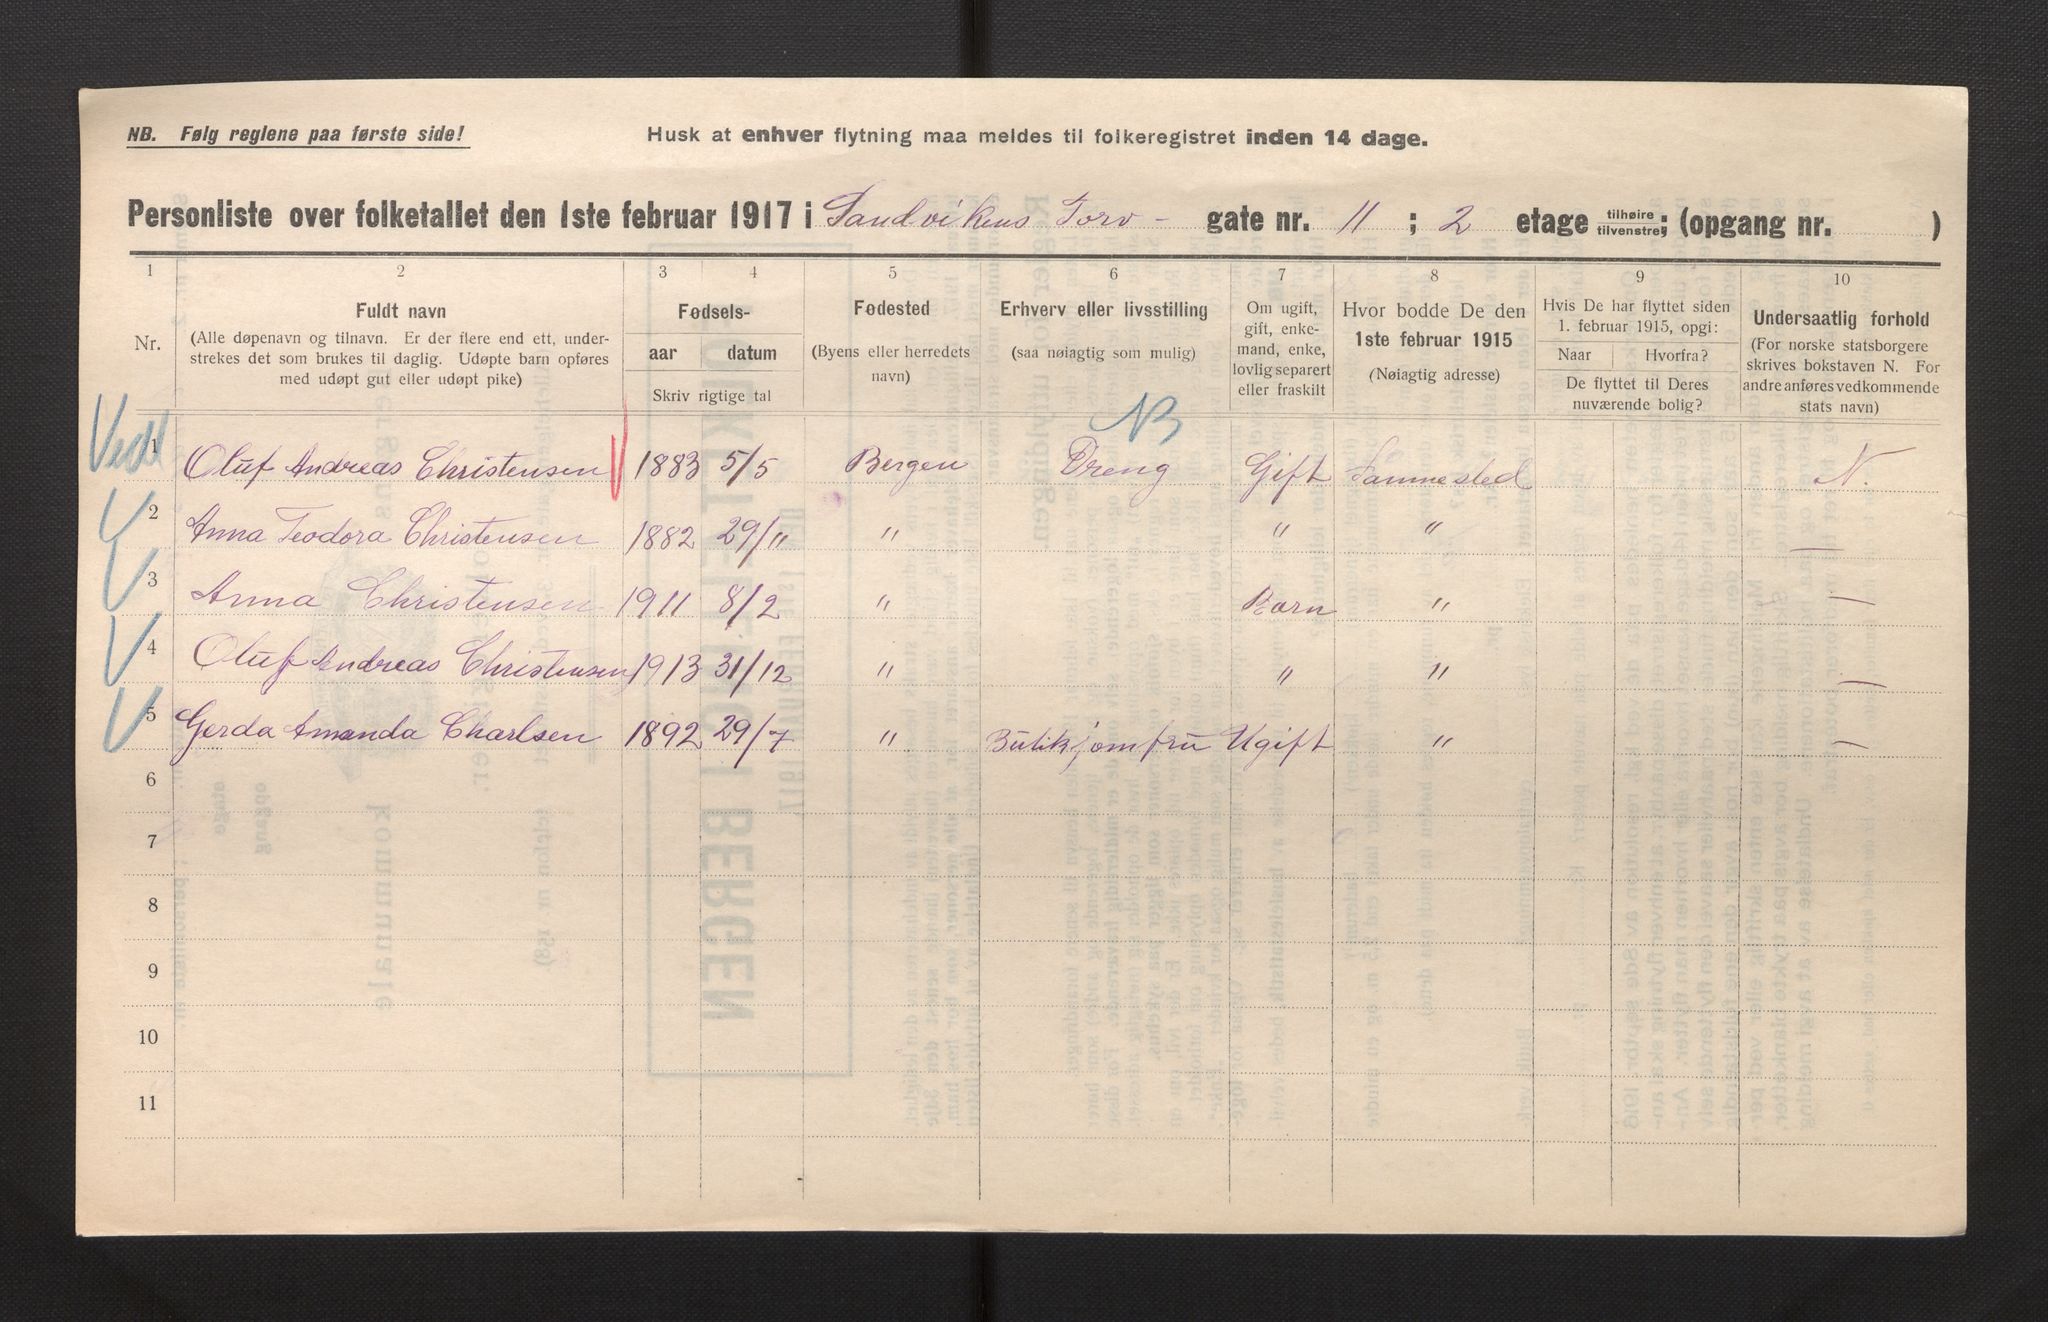 NB. Følg reglene paa første side!
Husk at enhver flytning maa meldes til folkeregistret inden 14 dage.
Personliste over folketallet den 1ste februar 1917 i Sandvikens Torv - gate nr. 11 ; 2 etage tilhøire tilvenstre; (opgang nr. )
1 2 3 4 5 6 7 8 9 10
Nr.
Fuldt navn
(Alle døpenavn og tilnavn. Er der flere end ett, under-
strekes det som brukes til daglig. Udøpte barn opføres
med udøpt gut eller udøpt pike)
Fødsels-
aar datum
Skriv rigtige tal
Fødested
(Byens eller herredets
navn)
Erhverv eller livsstilling
(saa nøiagtig som mulig)
Om ugift,
gift, enke-
mand, enke,
lovlig separert
eller fraskilt
Hvor bodde De den
1ste februar 1915
(Nøiagtig adresse)
Hvis De har flyttet siden
1. februar 1915, opgi:
Naar Hvorfra?
De flyttet til Deres
nuværende bolig?
Undersaatlig forhold
(For norske statsborgere
skrives bokstaven N. For
andre anføres vedkommende
stats navn)
NB
1 Oluf Andreas Christensen 1883 5/5 Bergen Dreng Gift Sammested N.
2 Anna Teodora Christensen 1882 29/11 " " " —
3 Anna Christensen 1911 8/2 " Barn " —
4 Oluf Andreas Christensen 1913 31/12 " " " —
5 Gerda Amanda Charlsen 1892 29/7 " Butikjomfru Ugift " —
6
7
8
9
10
11